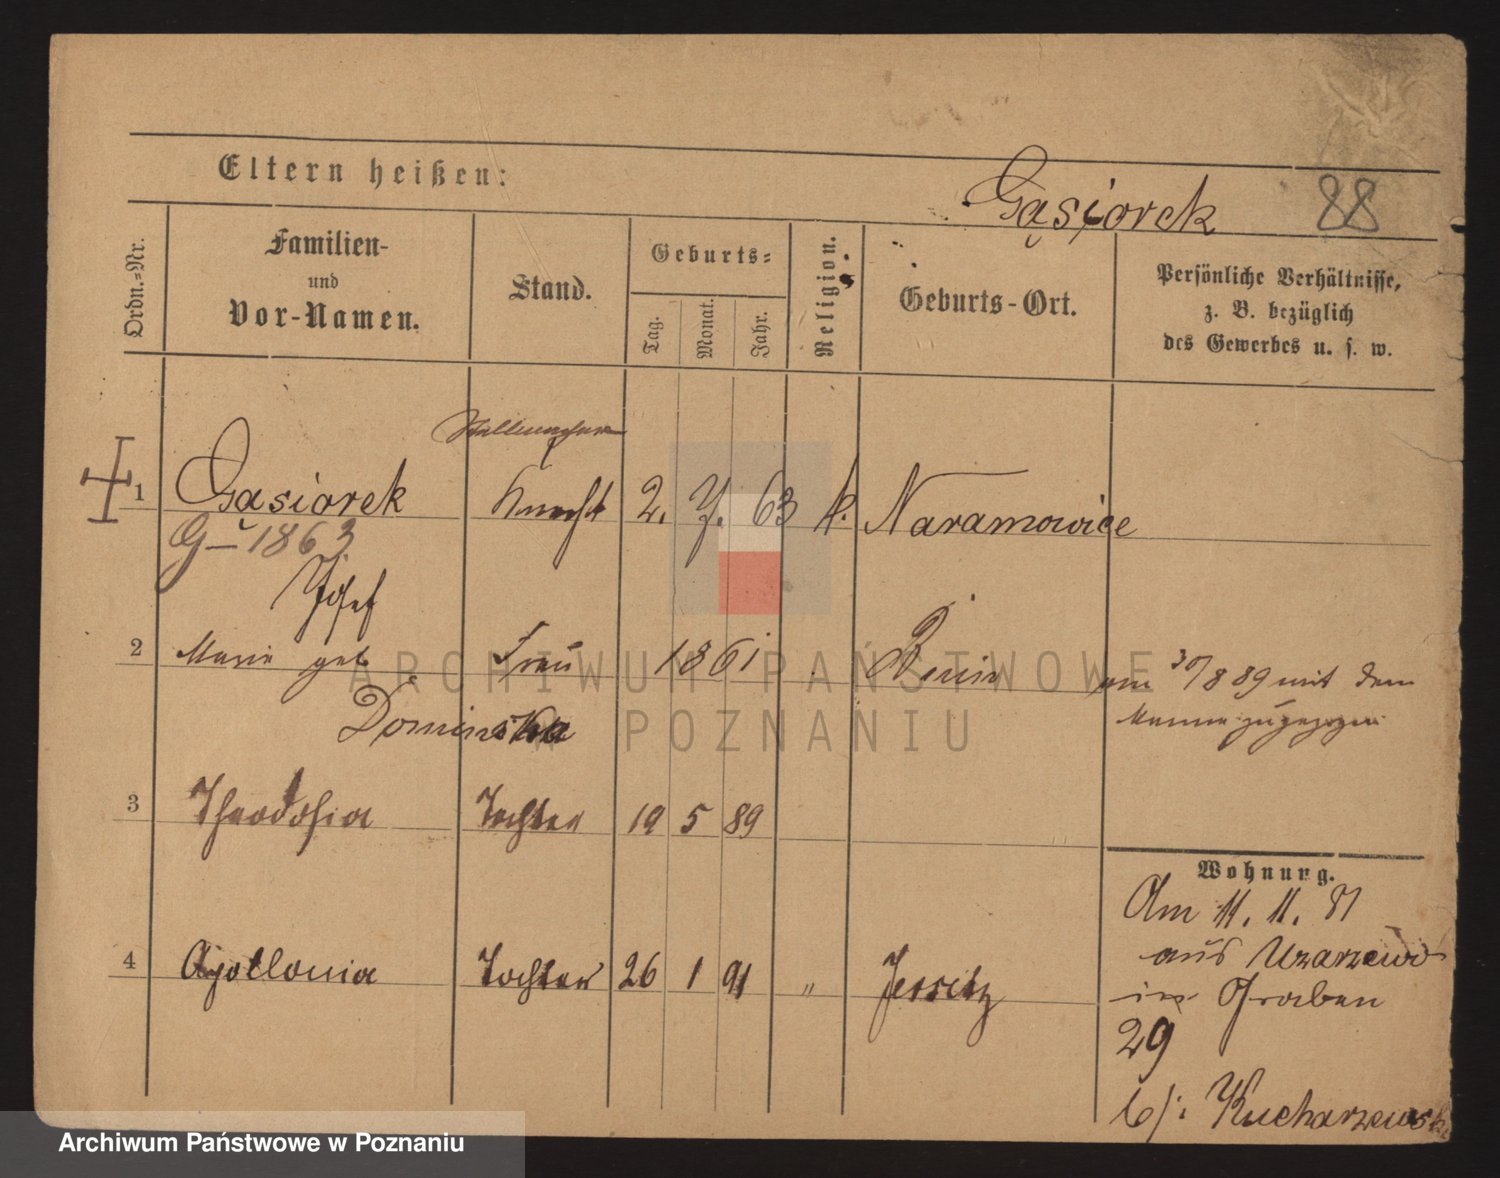 Eltern heißen:
Gąsiorek 88
Ordn.-Nr.
Familien-
und
Vor-Namen.
Stand.
Geburts-
Tag.
Monat.
Jahr.
Religion.
Geburts-Ort.
Persönliche Verhältnisse,
z. B. bezüglich
des Gewerbes u. s. w.
1 Gąsiorek Knecht 2. 7. 63 k. Naramowice
G 1863
Josef
2 Marie geb Frau 1861 am 30/8 89 mit dem
Dominska Manne zugezogen
3 Theodosia Tochter 19 5 89
4 Apollonia Tochter 26 1 91 " Jersitz
Wohnung.
Am 11. 11. 81
aus Uzarzewo
in Graben
29
b/: Kucharzewsk
ARCHIWUM PAŃSTWOWE
W POZNANIU
Archiwum Państwowe w Poznaniu